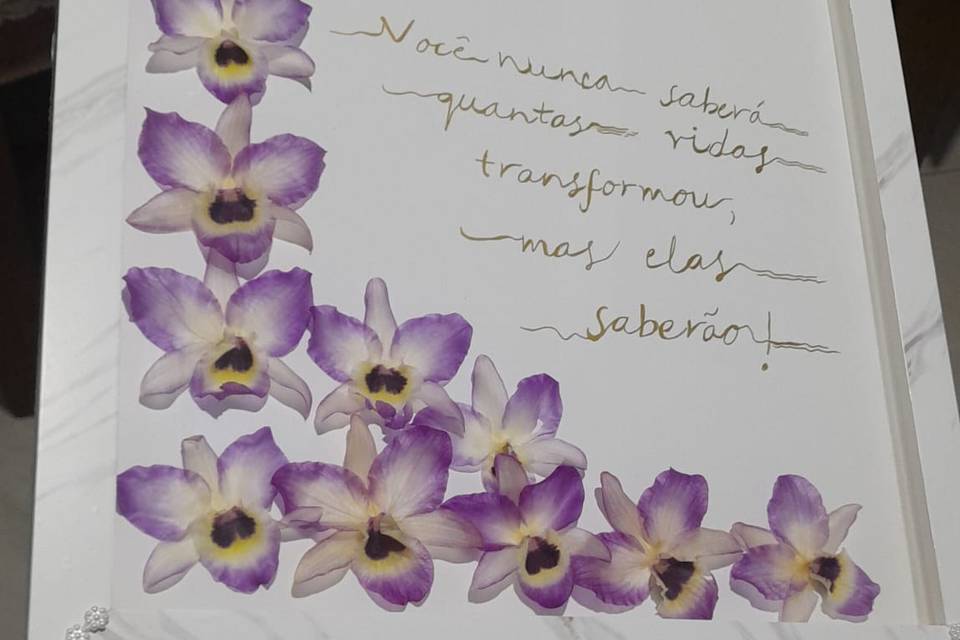 Você nunca saberá
quantas vidas
transformou,
mas elas
saberão!